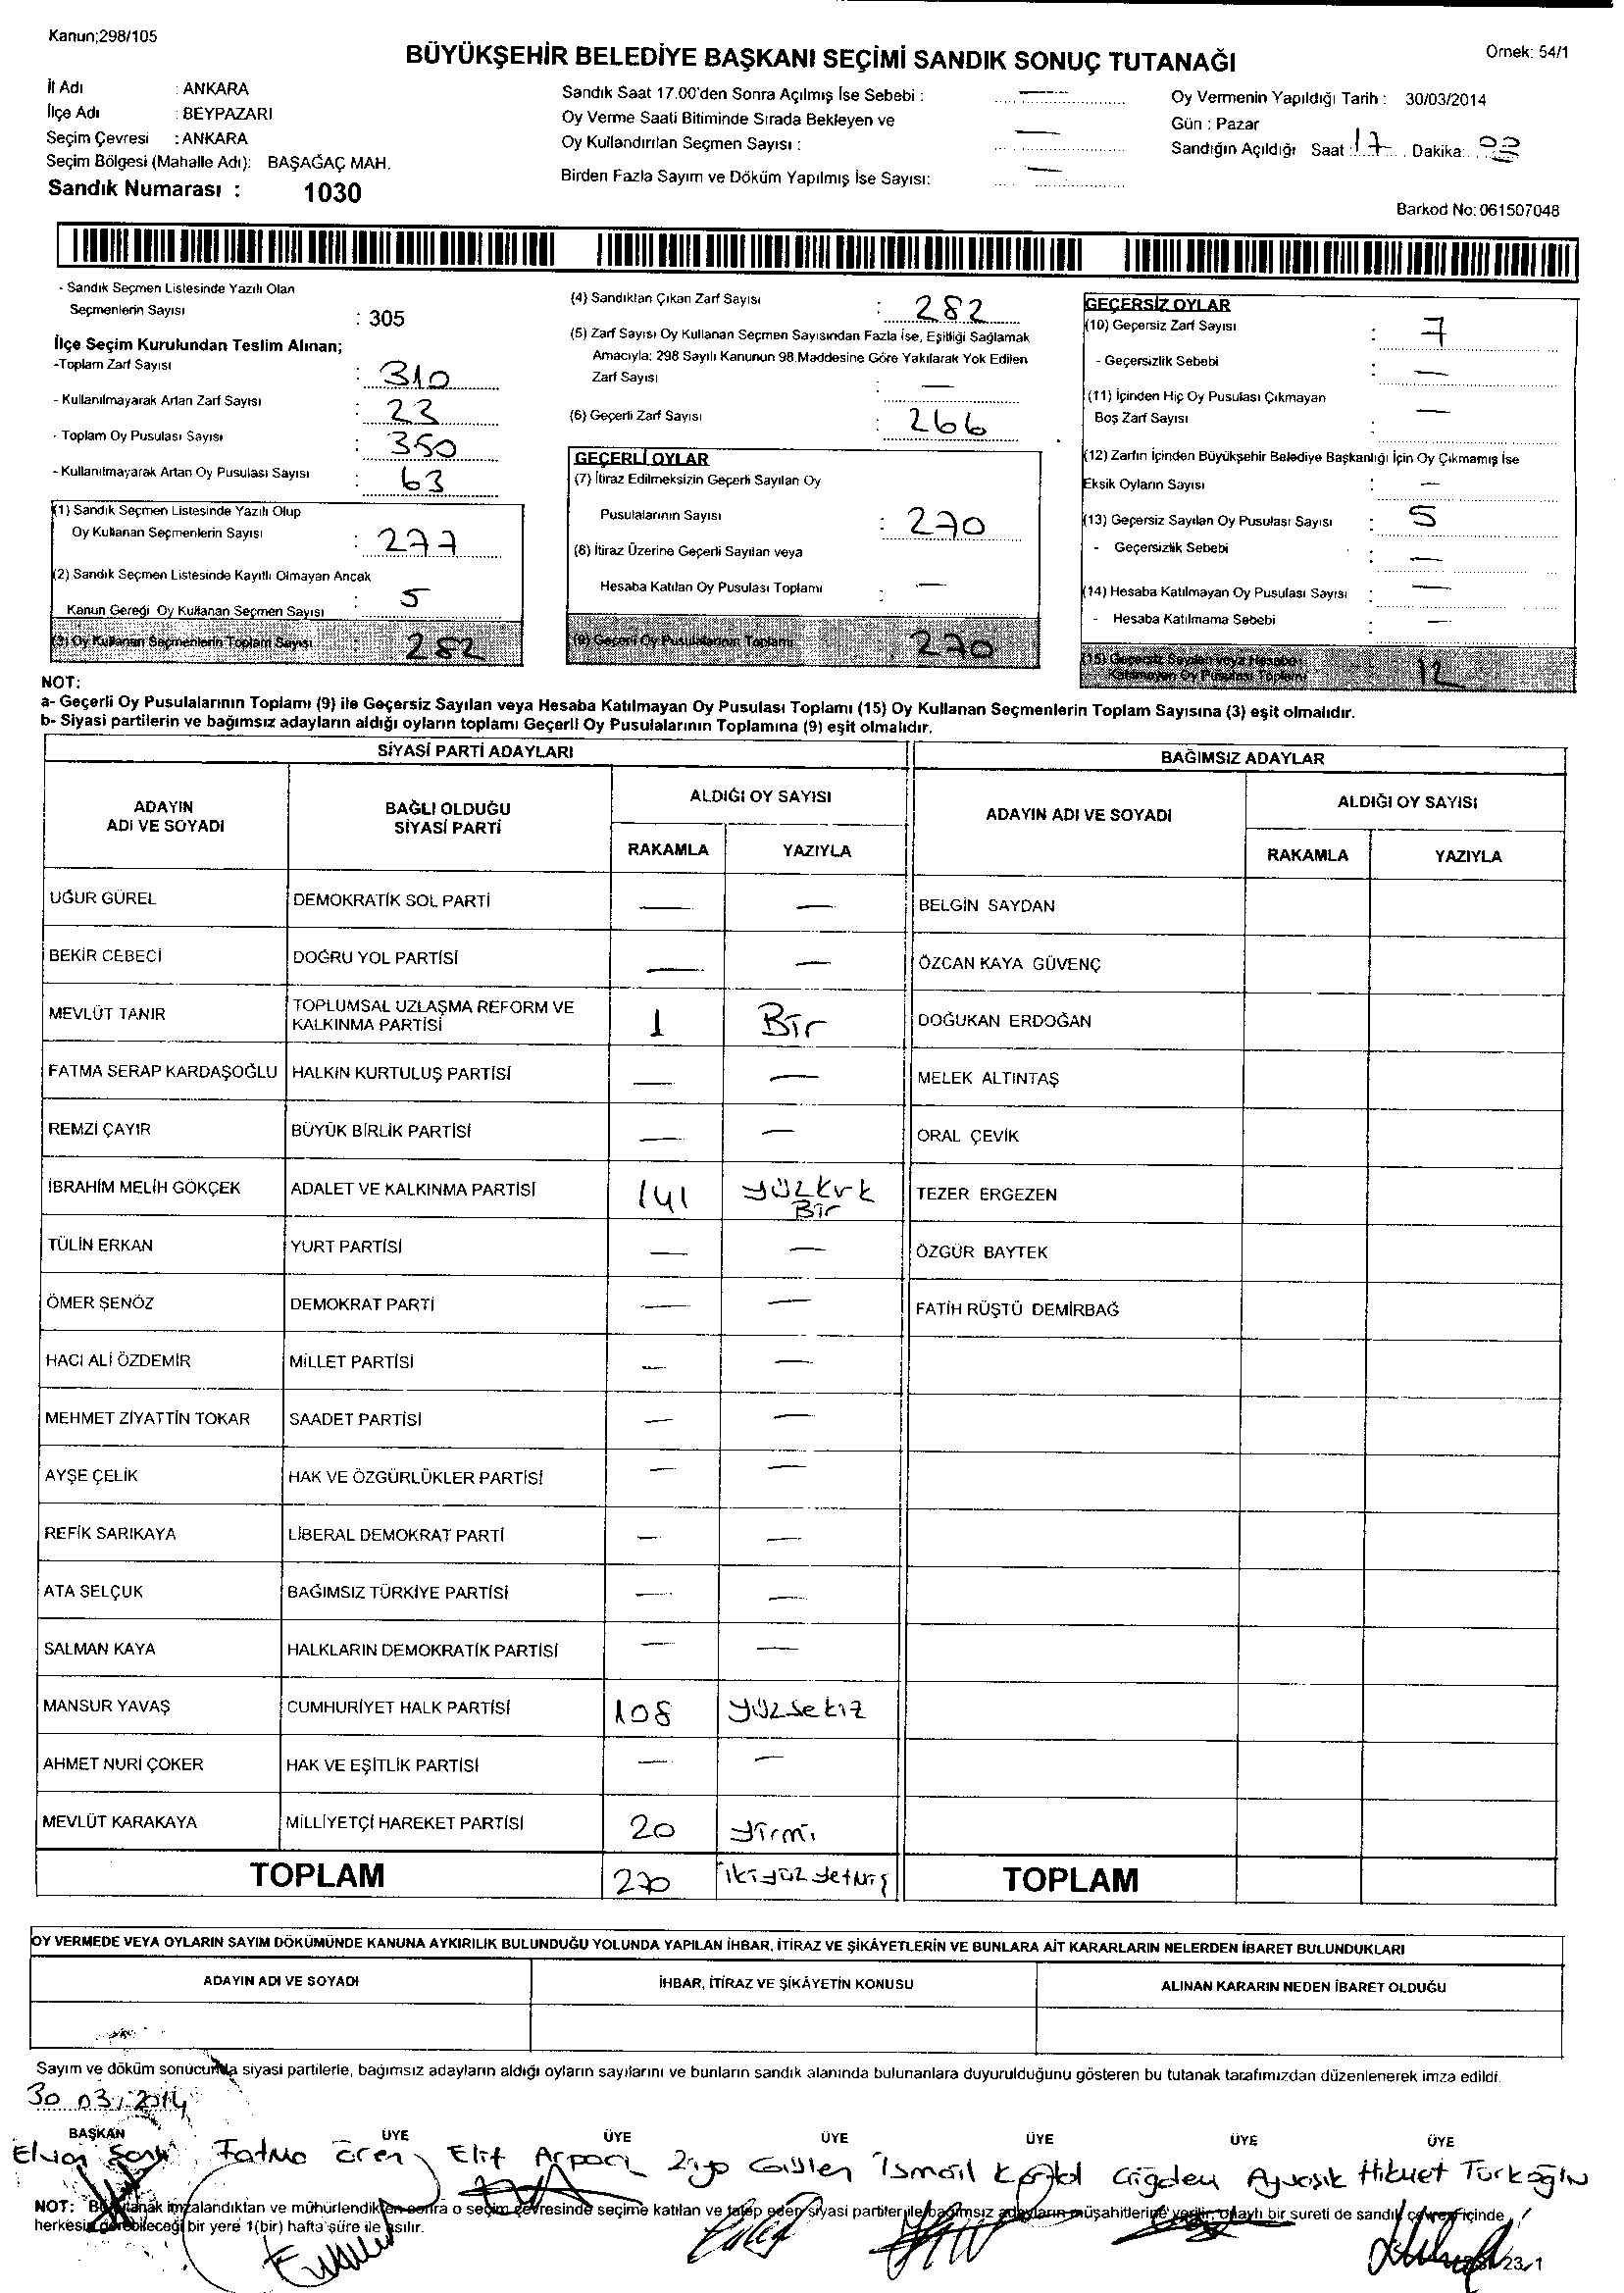 Kanun;298/105
BÜYÜKŞEHİR BELEDİYE BAŞKANI SEÇİMİ SANDIK SONUÇ TUTANAĞI
Örnek: 54/1
İl Adı : ANKARA
İlçe Adı : BEYPAZARI
Seçim Çevresi : ANKARA
Seçim Bölgesi (Mahalle Adı): BAŞAĞAÇ MAH.
Sandık Numarası : 1030
Sandık Saat 17.00'den Sonra Açılmış İse Sebebi : —
Oy Verme Saati Bitiminde Sırada Bekleyen ve
Oy Kullandırılan Seçmen Sayısı : —
Birden Fazla Sayım ve Döküm Yapılmış İse Sayısı: —
Oy Vermenin Yapıldığı Tarih : 30/03/2014
Gün : Pazar
Sandığın Açıldığı Saat : 17 Dakika:
Barkod No: 061507048
- Sandık Seçmen Listesinde Yazılı Olan
Seçmenlerin Sayısı : 305
İlçe Seçim Kurulundan Teslim Alınan;
-Toplam Zarf Sayısı : 310
- Kullanılmayarak Artan Zarf Sayısı : 23
- Toplam Oy Pusulası Sayısı : 350
- Kullanılmayarak Artan Oy Pusulası Sayısı : 63
(1) Sandık Seçmen Listesinde Yazılı Olup
Oy Kullanan Seçmenlerin Sayısı : 277
(2) Sandık Seçmen Listesinde Kayıtlı Olmayan Ancak
Kanun Gereği Oy Kullanan Seçmen Sayısı : 5
(3) Oy Kullanan Seçmenlerin Toplam Sayısı : 282
(4) Sandıktan Çıkan Zarf Sayısı : 282
(5) Zarf Sayısı Oy Kullanan Seçmen Sayısından Fazla İse, Eşitliği Sağlamak
Amacıyla; 298 Sayılı Kanunun 98.Maddesine Göre Yakılarak Yok Edilen
Zarf Sayısı : —
(6) Geçerli Zarf Sayısı : 266
GEÇERLİ OYLAR
(7) İtiraz Edilmeksizin Geçerli Sayılan Oy
Pusulalarının Sayısı : 270
(8) İtiraz Üzerine Geçerli Sayılan veya
Hesaba Katılan Oy Pusulası Toplamı : —
(9) Geçerli Oy Pusulalarının Toplamı : 270
GEÇERSİZ OYLAR
(10) Geçersiz Zarf Sayısı : 7
- Geçersizlik Sebebi : —
(11) İçinden Hiç Oy Pusulası Çıkmayan
Boş Zarf Sayısı : —
(12) Zarfın İçinden Büyükşehir Belediye Başkanlığı İçin Oy Çıkmamış İse
Eksik Oyların Sayısı : —
(13) Geçersiz Sayılan Oy Pusulası Sayısı : 5
- Geçersizlik Sebebi : —
(14) Hesaba Katılmayan Oy Pusulası Sayısı : —
- Hesaba Katılmama Sebebi : —
(15) Geçersiz Sayılan veya Hesaba
Katılmayan Oy Pusulası Toplamı 12
NOT:
a- Geçerli Oy Pusulalarının Toplamı (9) ile Geçersiz Sayılan veya Hesaba Katılmayan Oy Pusulası Toplamı (15) Oy Kullanan Seçmenlerin Toplam Sayısına (3) eşit olmalıdır.
b- Siyasi partilerin ve bağımsız adayların aldığı oyların toplamı Geçerli Oy Pusulalarının Toplamına (9) eşit olmalıdır.
SİYASİ PARTİ ADAYLARI
ADAYIN ADI VE SOYADI
BAĞLI OLDUĞU SİYASİ PARTİ
ALDIĞI OY SAYISI
RAKAMLA YAZIYLA
UĞUR GÜREL DEMOKRATİK SOL PARTİ — —
BEKİR CEBECİ DOĞRU YOL PARTİSİ — —
MEVLÜT TANIR TOPLUMSAL UZLAŞMA REFORM VE KALKINMA PARTİSİ 1 Bir
FATMA SERAP KARDAŞOĞLU HALKIN KURTULUŞ PARTİSİ — —
REMZİ ÇAYIR BÜYÜK BİRLİK PARTİSİ — —
İBRAHİM MELİH GÖKÇEK ADALET VE KALKINMA PARTİSİ 141 yüzkırk Bir
TÜLİN ERKAN YURT PARTİSİ — —
ÖMER ŞENÖZ DEMOKRAT PARTİ — —
HACI ALİ ÖZDEMİR MİLLET PARTİSİ — —
MEHMET ZİYATTİN TOKAR SAADET PARTİSİ — —
AYŞE ÇELİK HAK VE ÖZGÜRLÜKLER PARTİSİ — —
REFİK SARIKAYA LİBERAL DEMOKRAT PARTİ — —
ATA SELÇUK BAĞIMSIZ TÜRKİYE PARTİSİ — —
SALMAN KAYA HALKLARIN DEMOKRATİK PARTİSİ — —
MANSUR YAVAŞ CUMHURİYET HALK PARTİSİ 108 yüzsekiz
AHMET NURİ ÇOKER HAK VE EŞİTLİK PARTİSİ — —
MEVLÜT KARAKAYA MİLLİYETÇİ HAREKET PARTİSİ 20 yirmi
TOPLAM 270 ikiyüz yetmiş
BAĞIMSIZ ADAYLAR
ADAYIN ADI VE SOYADI
ALDIĞI OY SAYISI
RAKAMLA YAZIYLA
BELGİN SAYDAN
ÖZCAN KAYA GÜVENÇ
DOĞUKAN ERDOĞAN
MELEK ALTINTAŞ
ORAL ÇEVİK
TEZER ERGEZEN
ÖZGÜR BAYTEK
FATİH RÜŞTÜ DEMİRBAĞ
TOPLAM
OY VERMEDE VEYA OYLARIN SAYIM DÖKÜMÜNDE KANUNA AYKIRILIK BULUNDUĞU YOLUNDA YAPILAN İHBAR, İTİRAZ VE ŞİKÂYETLERİN VE BUNLARA AİT KARARLARIN NELERDEN İBARET BULUNDUKLARI
ADAYIN ADI VE SOYADI İHBAR, İTİRAZ VE ŞİKÂYETİN KONUSU ALINAN KARARIN NEDEN İBARET OLDUĞU
Sayım ve döküm sonucunda siyasi partilerle, bağımsız adayların aldığı oyların sayılarını ve bunların sandık alanında bulunanlara duyurulduğunu gösteren bu tutanak tarafımızdan düzenlenerek imza edildi.
30 03/2014
BAŞKAN ÜYE ÜYE ÜYE ÜYE ÜYE ÜYE
Fatma Elif Arpacı İsmail Çiğdem Hikmet
NOT: Bu tutanak imzalandıktan ve mühürlendikten sonra o seçim çevresinde seçime katılan ve talep eden siyasi partiler ile bağımsız adayların müşahitlerine verilir, onaylı bir sureti de sandık çevresi içinde
herkesin görebileceği bir yere 1(bir) hafta süre ile asılır.